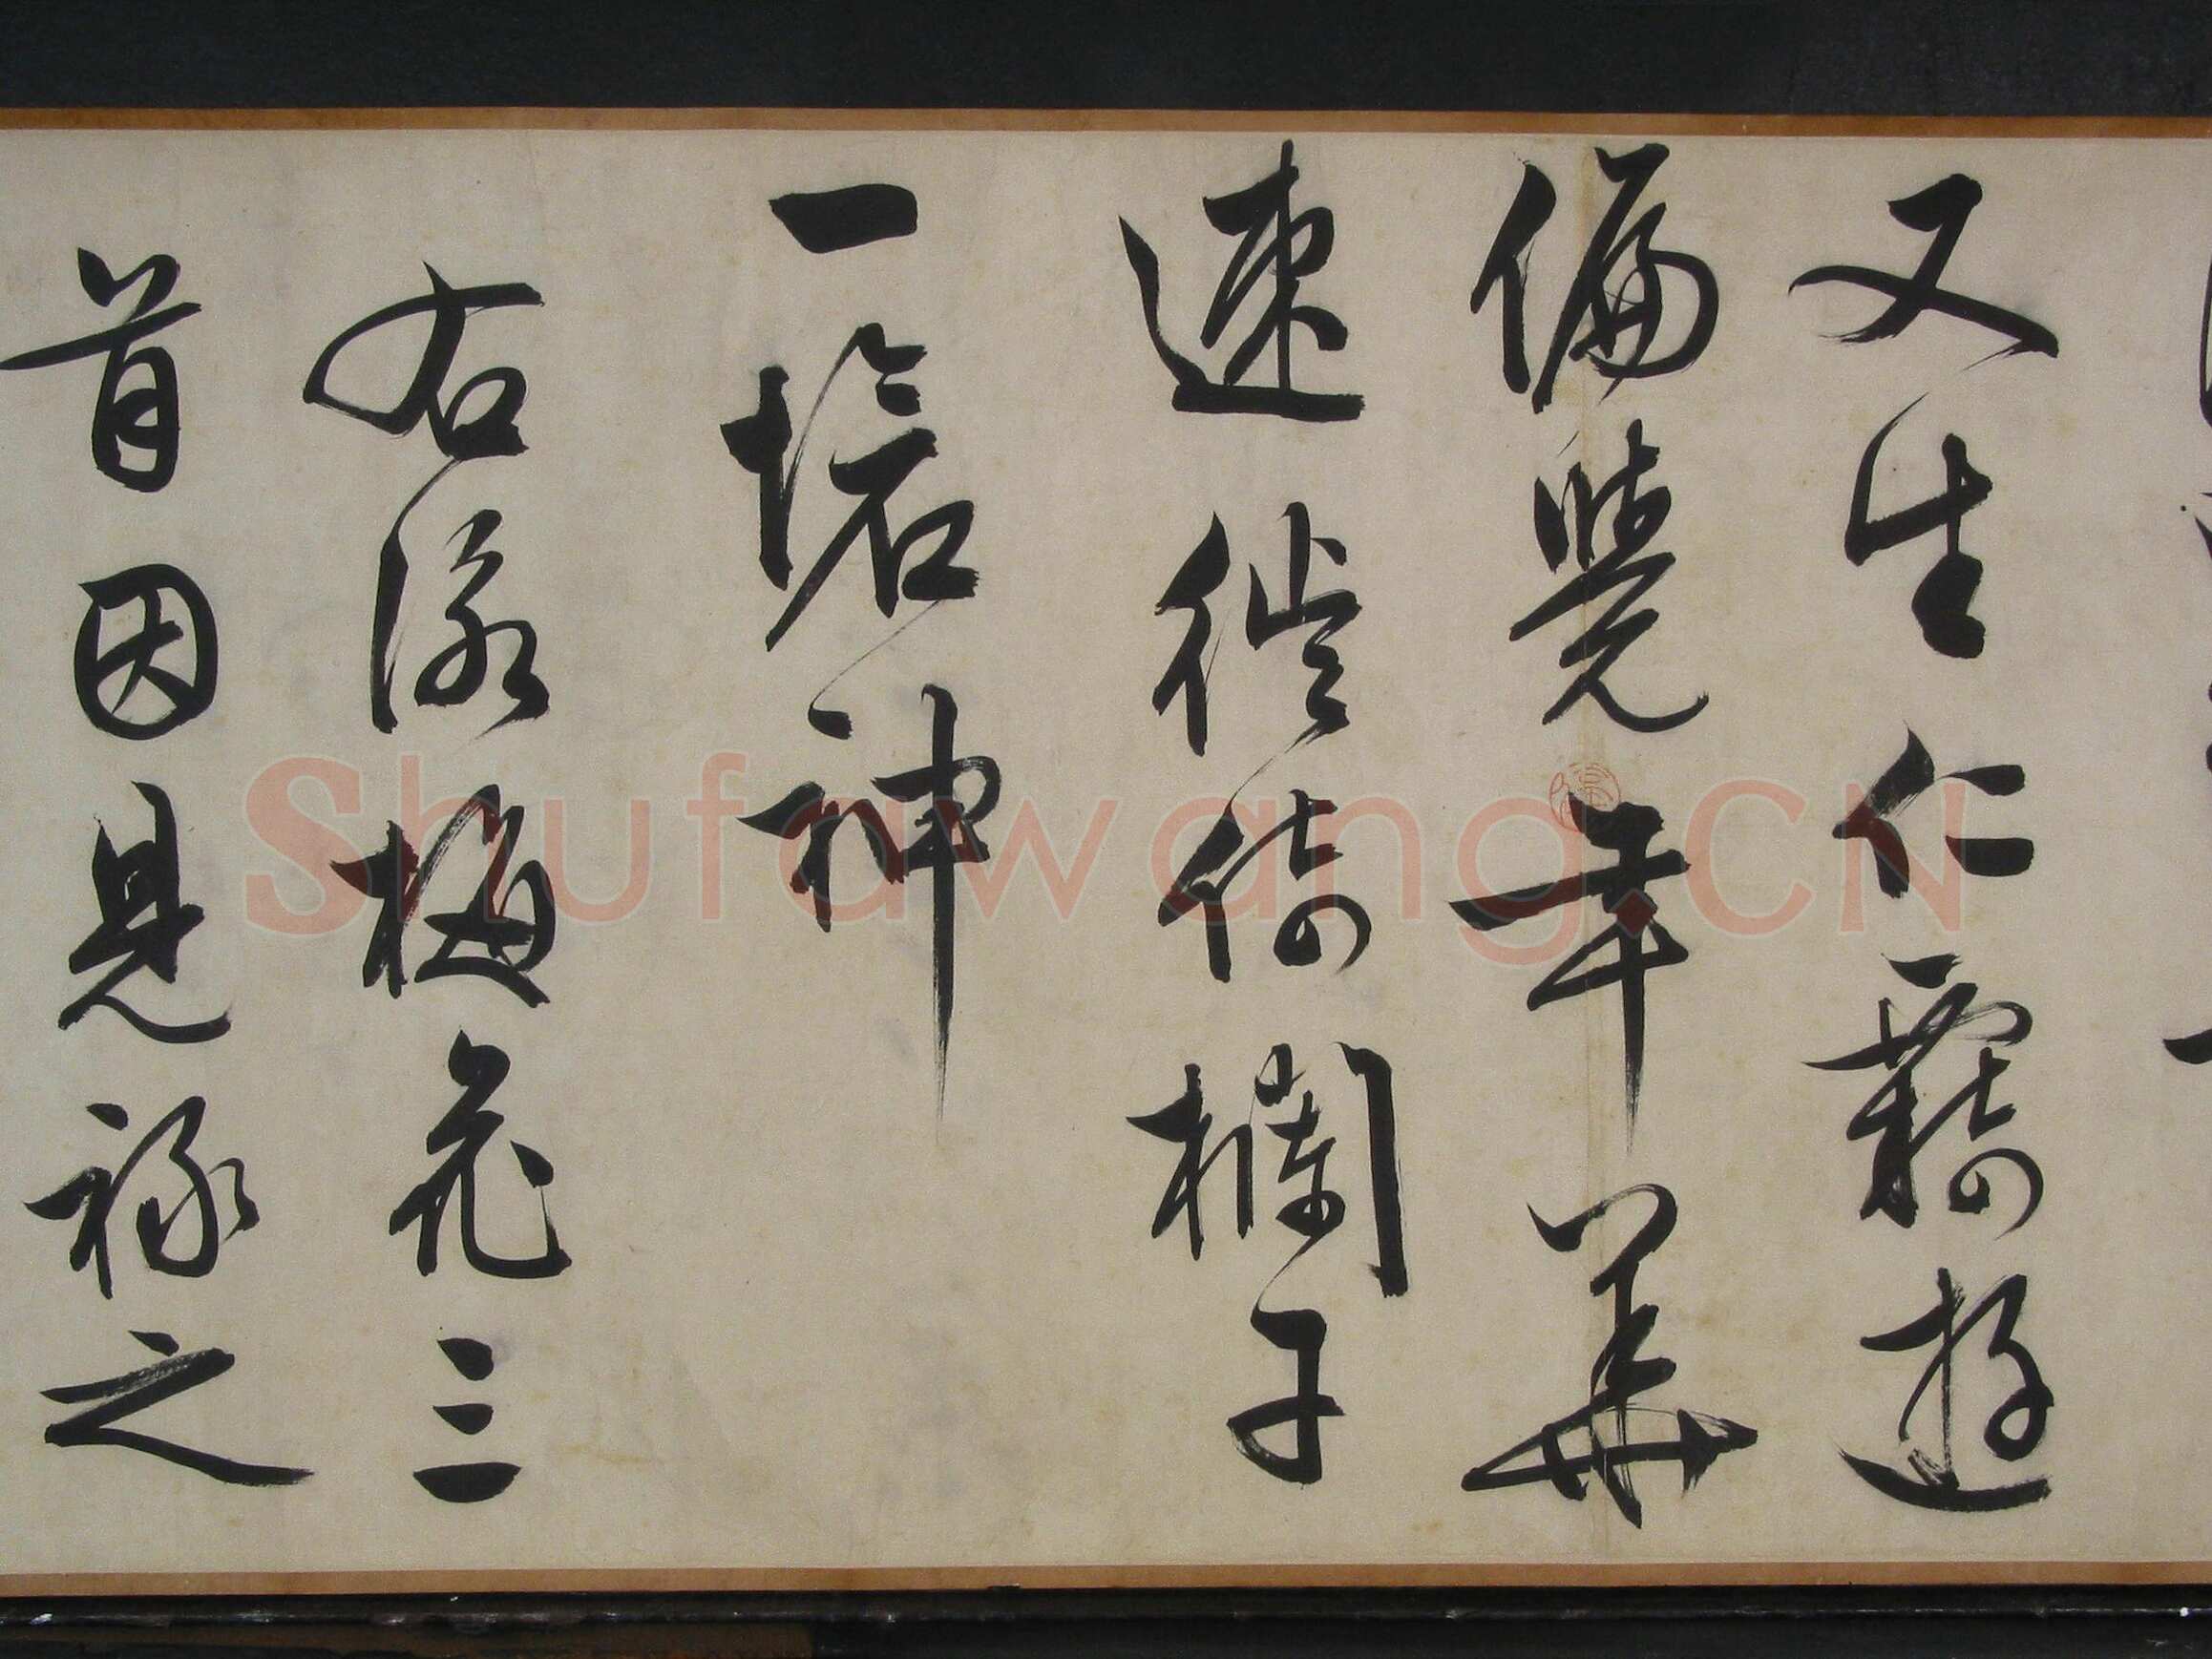 又生仁羈遊
偏覺年華
速徙倚欄干
一愴神
右詠梅花三
首因見祿之
Shufawang.CN